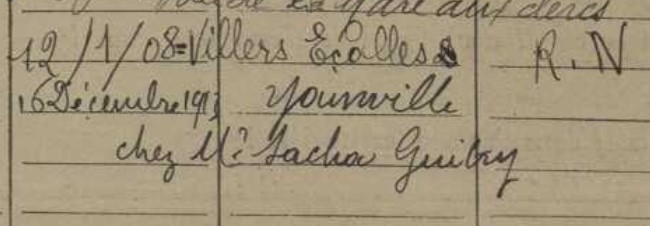 de la gare aux
12/1/08=Villers Ecalles R.N
16 Décembre 1913 Yainville
chez Mr Sacha Guitry